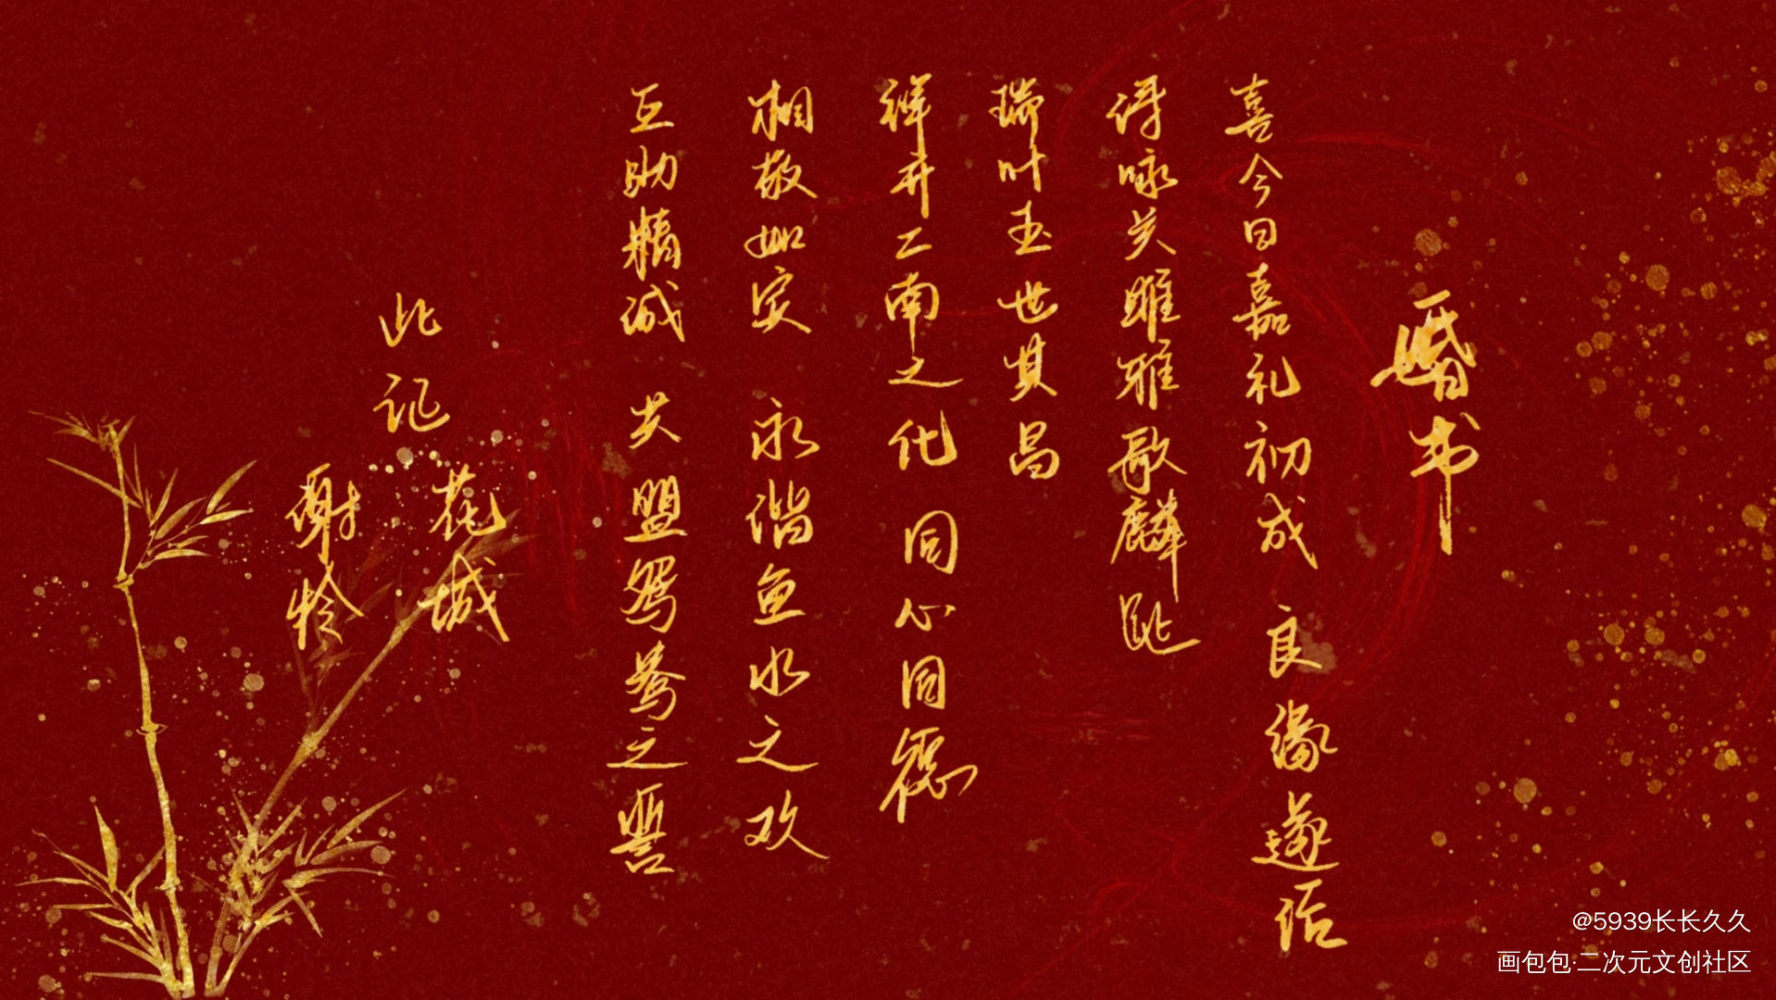 婚书
喜今日嘉礼初成 良缘遂结
诗咏关雎雅歌麟趾
瑞叶五世其昌
祥开二南之化 同心同德
相敬如宾 永谐鱼水之欢
互助精诚 共盟鸳鸯之誓
此证
花城
谢怜
@5939长长久久
画包包·二次元文创社区